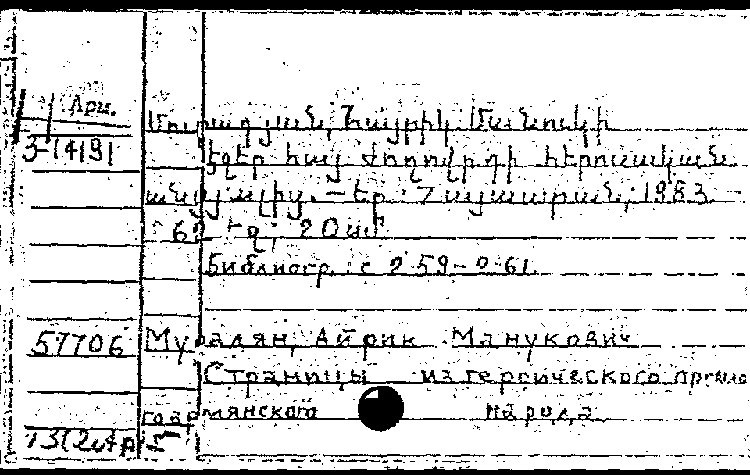 Арм.
Մուրադյան, Հայրիկ Մանուկի
3-14191
էջեր հայ ժողովրդի հերոսական
անցյալից. – Եր.: Հայաստան, 1983.
62 էջ; 20 սմ
Библиогр.: с 259-
57706 Мурадян, Айрик Манукович
Страницы из героического
армянского народа